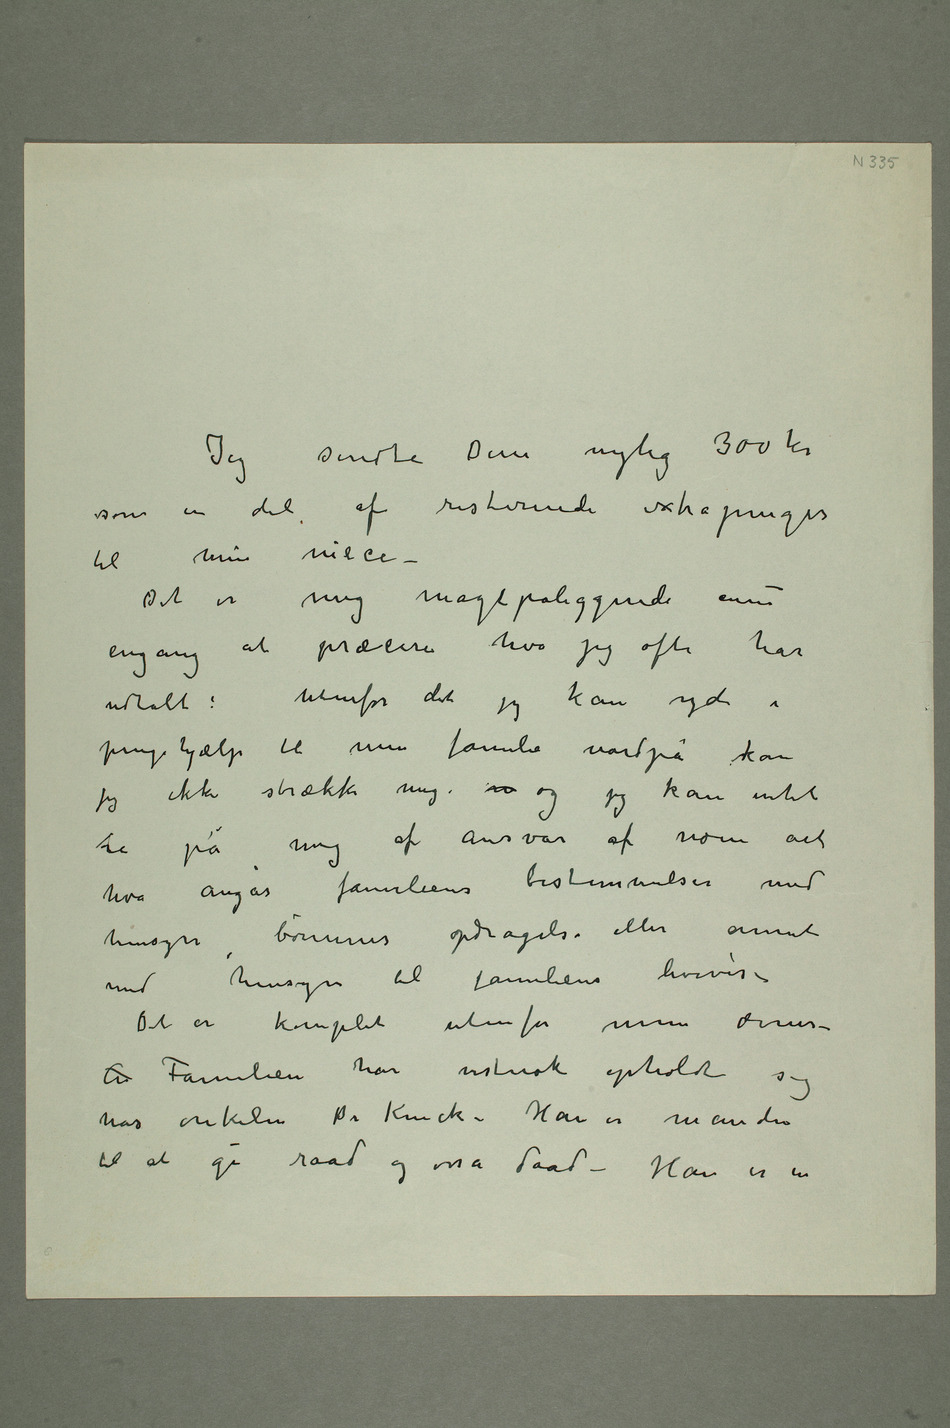 N 335
Jeg sendte Dem nylig 300 kr
som en del af resterende extrapenger
til min niece –
Det er mig magtpåliggende ennu
engang at præcere hva jeg ofte har
udtalt: Utenfor det jeg kan yde i
pengehjælp til min familie nordpå kan
jeg ikke strække mig. og jeg kan intet
ta på mig af ansvar af noen art
hva angår familiens bestemmelser med
hensyn børnenes opdragelse eller annet
med hensyn til familiens livsvis –
Det er komplet utenfor min ævne –
Familien har vistnok opholdt sig
hos onkelen Dr Kinck – Han er manden
til at gi raad og osså daad – Han er en